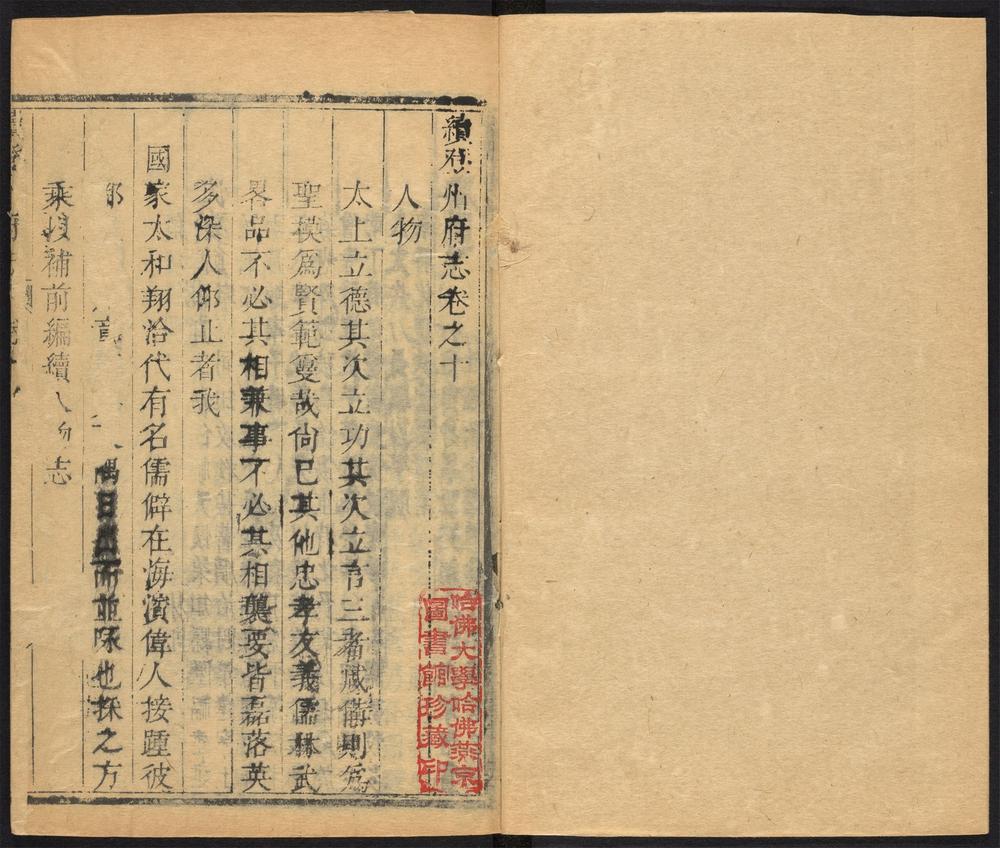 續登州府志卷之十
人物
太上立德其次立功其次立言三者咸備則為
聖模為賢範敻哉尚已其他忠孝友義儒林武
畧品不必其相兼事不必其相襲要皆磊落英
多深人仰止者我
國家太和翔洽代有名儒僻在海濱偉人接踵彼
隅日出而並也採之方
乘以補前編續人物志
哈佛大學哈佛燕京
圖書館珍藏印